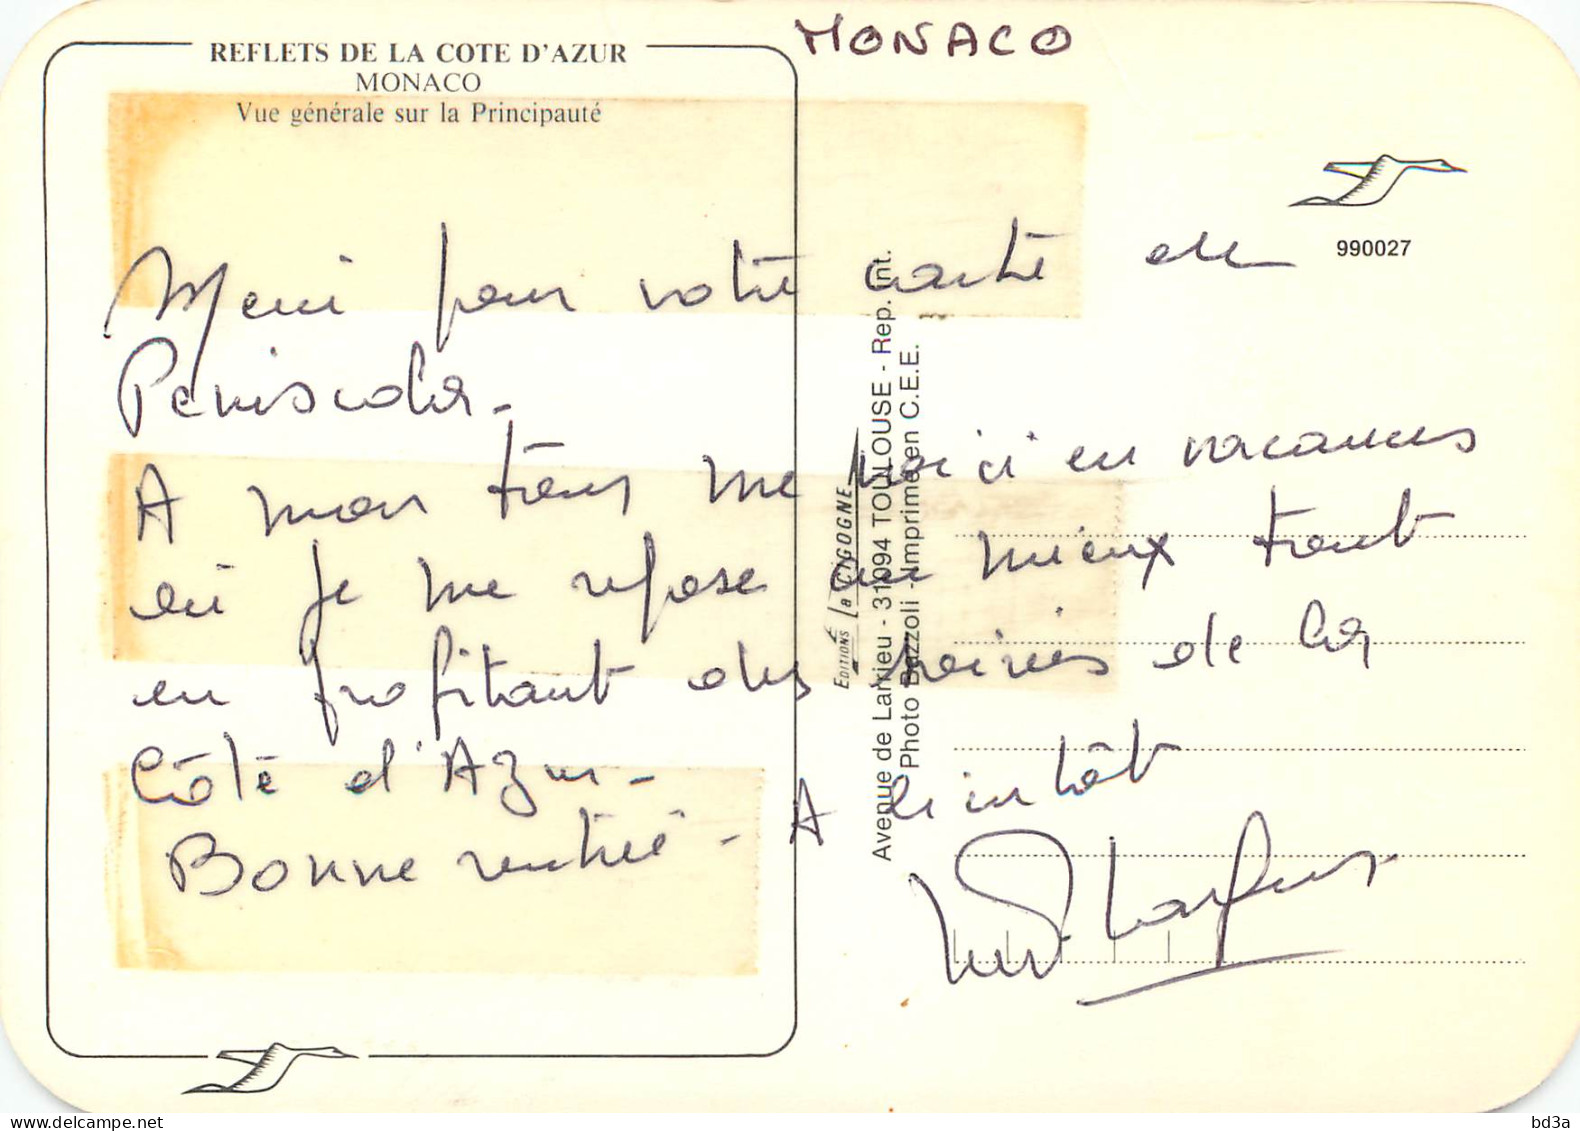 MONACO
REFLETS DE LA COTE D'AZUR
MONACO
Vue générale sur la Principauté
990027
Merci pour votre carte de
Peniscola -
A mon tour me voici en vacances
où je me repose au mieux tout
en profitant des soirées de la
Côte d'Azur -
Bonne rentrée - A bientôt
EDITIONS la CIGOGNE
Avenue de Larrieu - 31094 TOULOUSE - Rep. Int.
Photo Buzzoli - Imprimé en C.E.E.
delcampe.net
bd3a